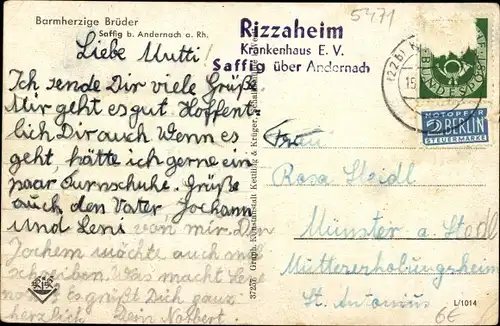 Barmherzige Brüder
Saffig b. Andernach a. Rh.
Liebe Mutti!
Ich sende Dir viele Grüße
Mir geht es gut Hoffent-
lich Dir auch Wenn es
geht, hätte ich gerne ein
paar Turnschuhe. Grüße
auch den Vater, Jochann
und Leni von mir. Der
Jochem möchte auch mal
schreiben. Was macht Le
no? Es grüßt Dich ganz
herzlich Dein Norbert.
5471
Rizzaheim
Krankenhaus E. V.
Saffig über Andernach
(22b)
15.
BUNDESPOST
NOTOPFER
2 BERLIN
STEUERMARKE
Frau
Rosa Steidl
Münster a. Stedl
Müttererholungsheim
St. Antonius
37257 Graph. Kunstanstalt Kettling & Krüger, Schalksmühle
L/1014
6€